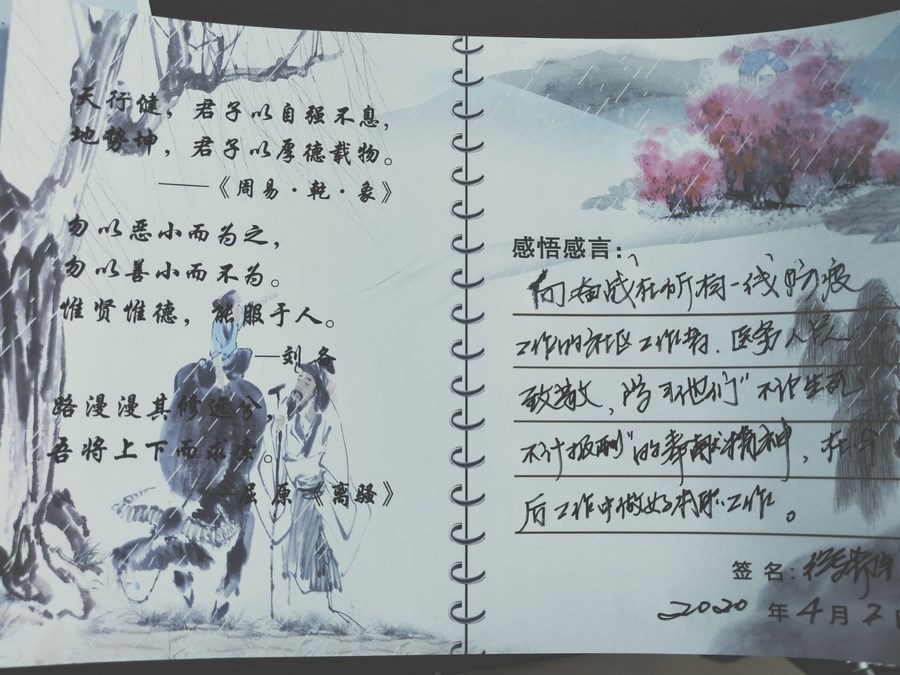 天行健，君子以自强不息，
地势坤，君子以厚德载物。
——《周易·乾·象》
勿以恶小而为之，
勿以善小而不为。
惟贤惟德，能服于人。
—刘备
路漫漫其修远兮，
吾将上下而求索。
—屈原《离骚》
感悟感言：
向奋战在所有一线防疫
工作的社区工作者、医务人员
致敬，学习他们“不计生死
不计报酬”的奉献精神，在今
后工作中做好本职工作。
签名：
2020年4月2日